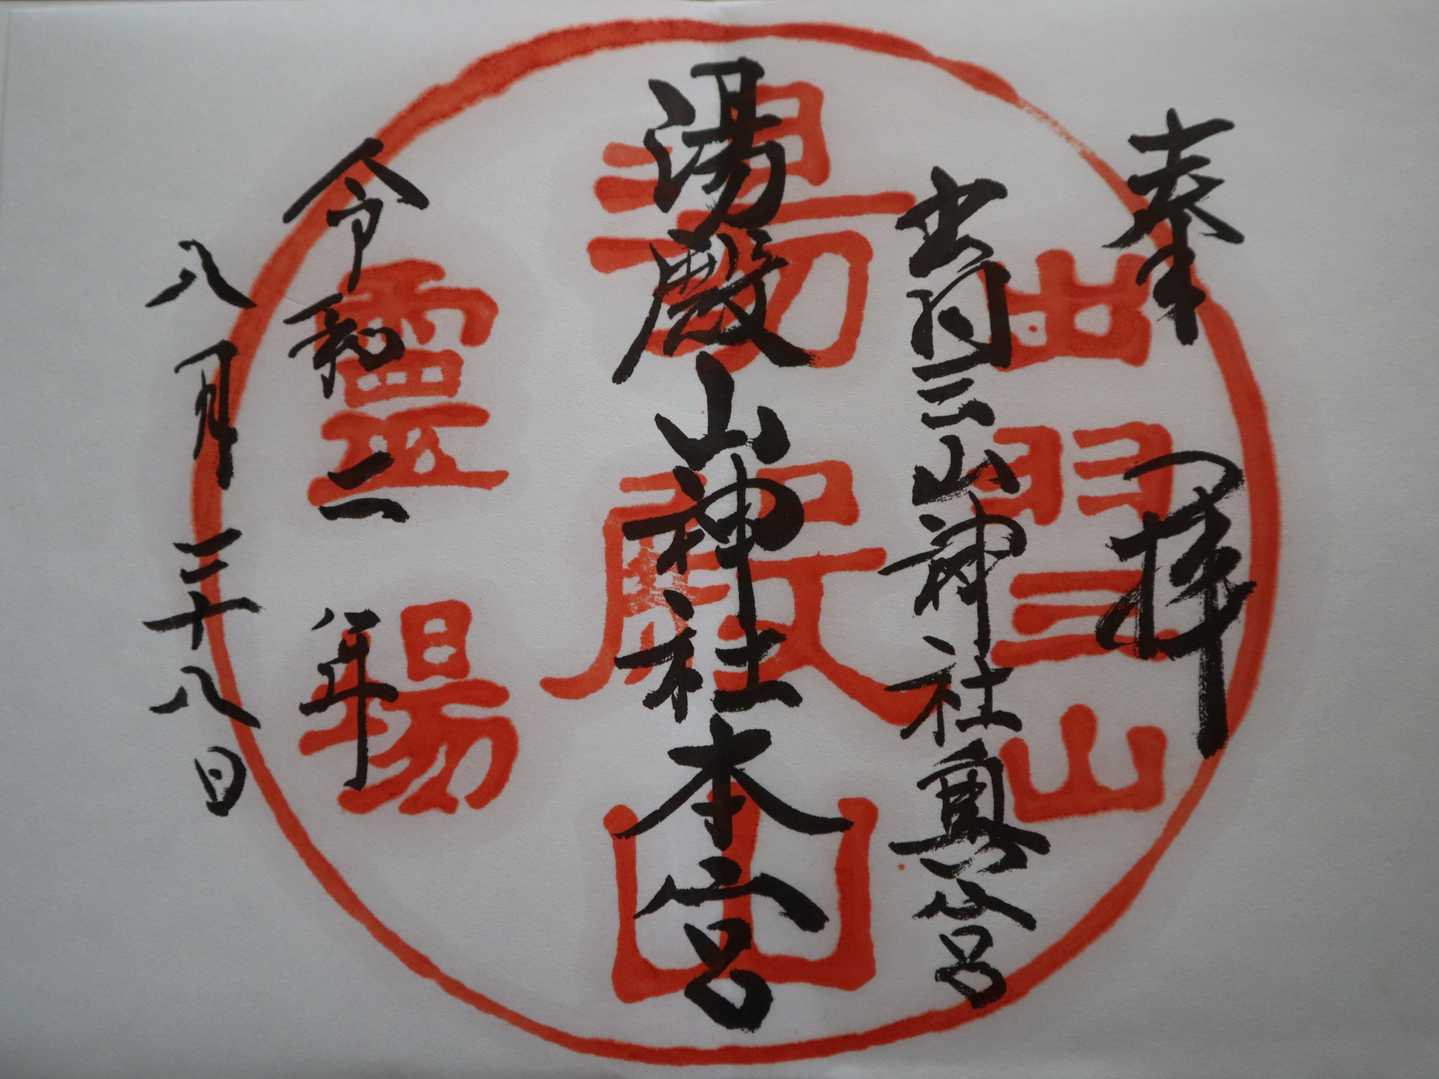 奉拝
出羽三山神社奥宮
湯殿山神社本宮
令和二年
八月二十八日
出羽三山
湯殿山
靈場